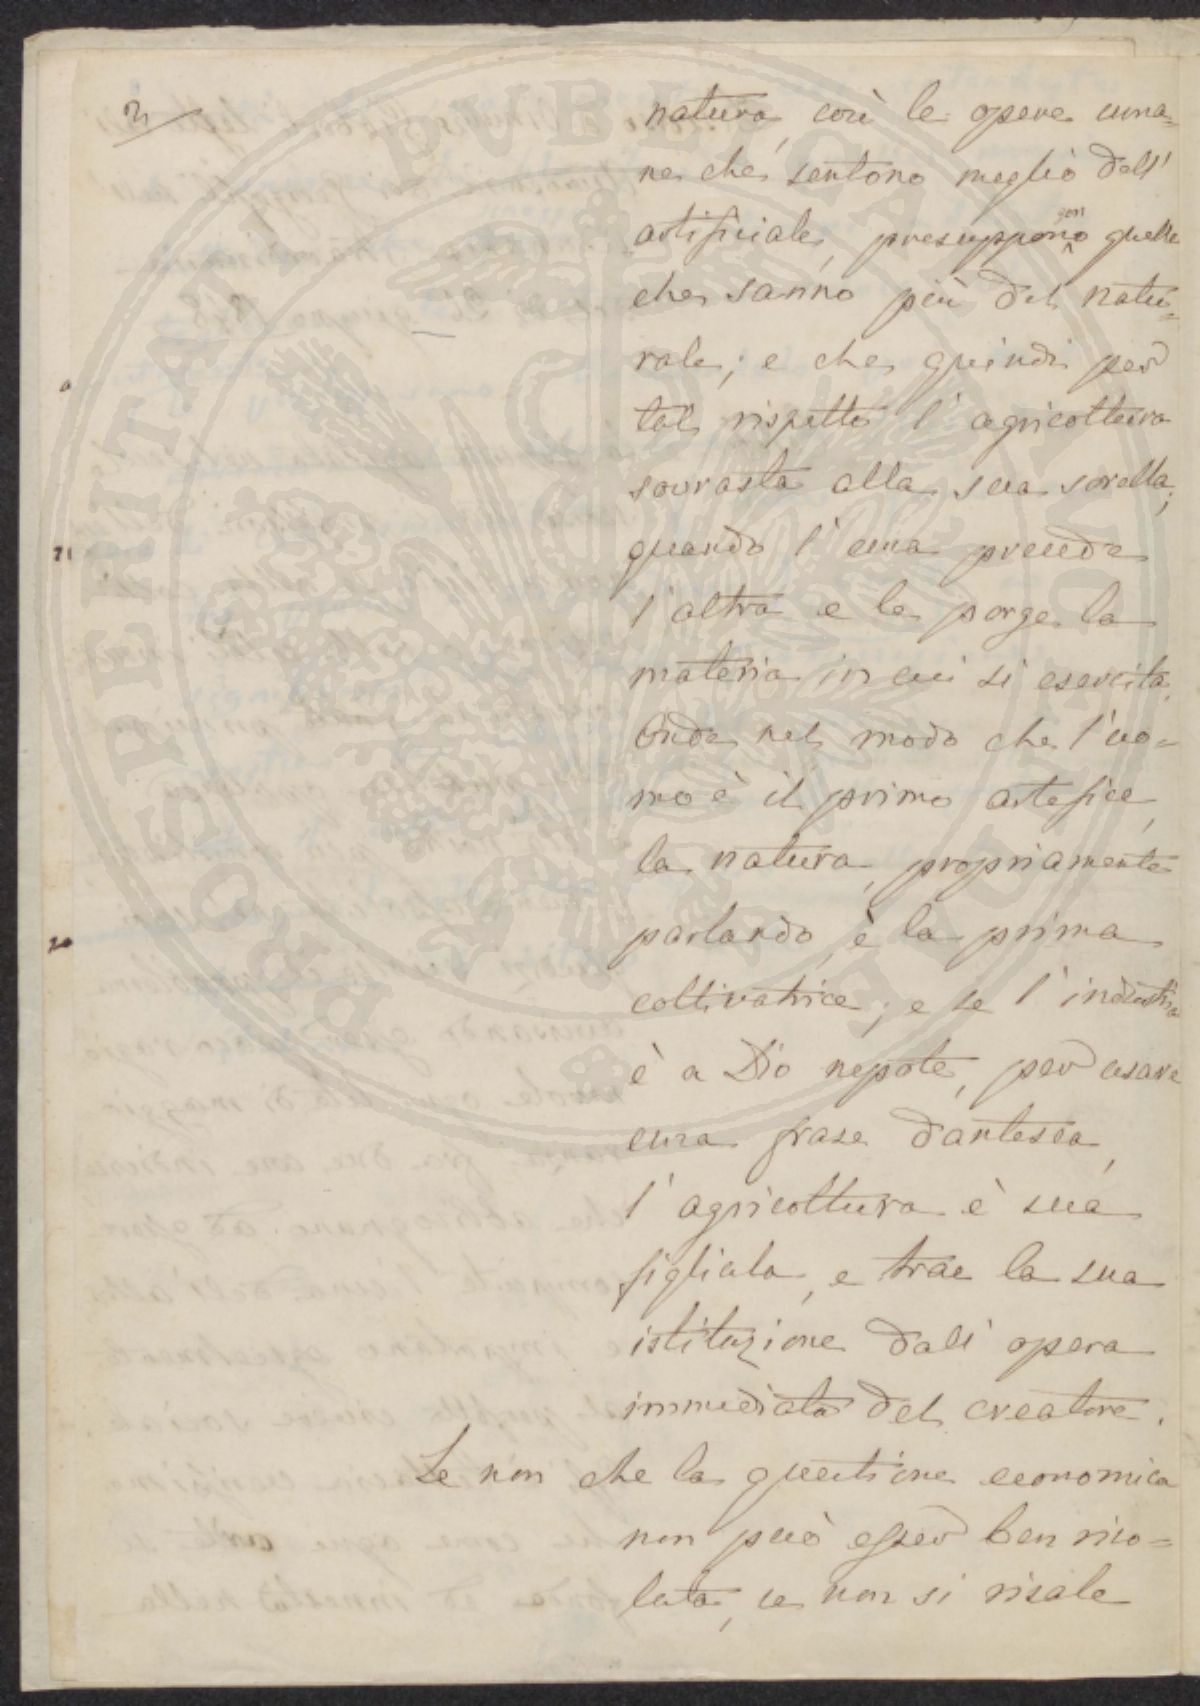 2/
natura, così le opere uma=
ne che sentono meglio dell'
artificiale, presuppongono quelle
che sanno più del natu=
rale; e che quindi per
tal rispetto l'agricoltura
sovrasta alla sua sorella;
quando l'una precede
l'altra e le porge la
materia in cui si esercita.
Onde nel modo che l'uo=
mo è il primo artefice,
la natura, propriamente
parlando, è la prima
coltivatrice; e se l'industria
è a Dio nepote, per usare
una frase dantesca,
l'agricoltura è sua
figliuola, e trae la sua
istituzione dall'opera
immediata del creatore.
Se non che la questione economica
non può esser ben riso=
luta, se non si risale
PROSPERITATI PUBLICAE